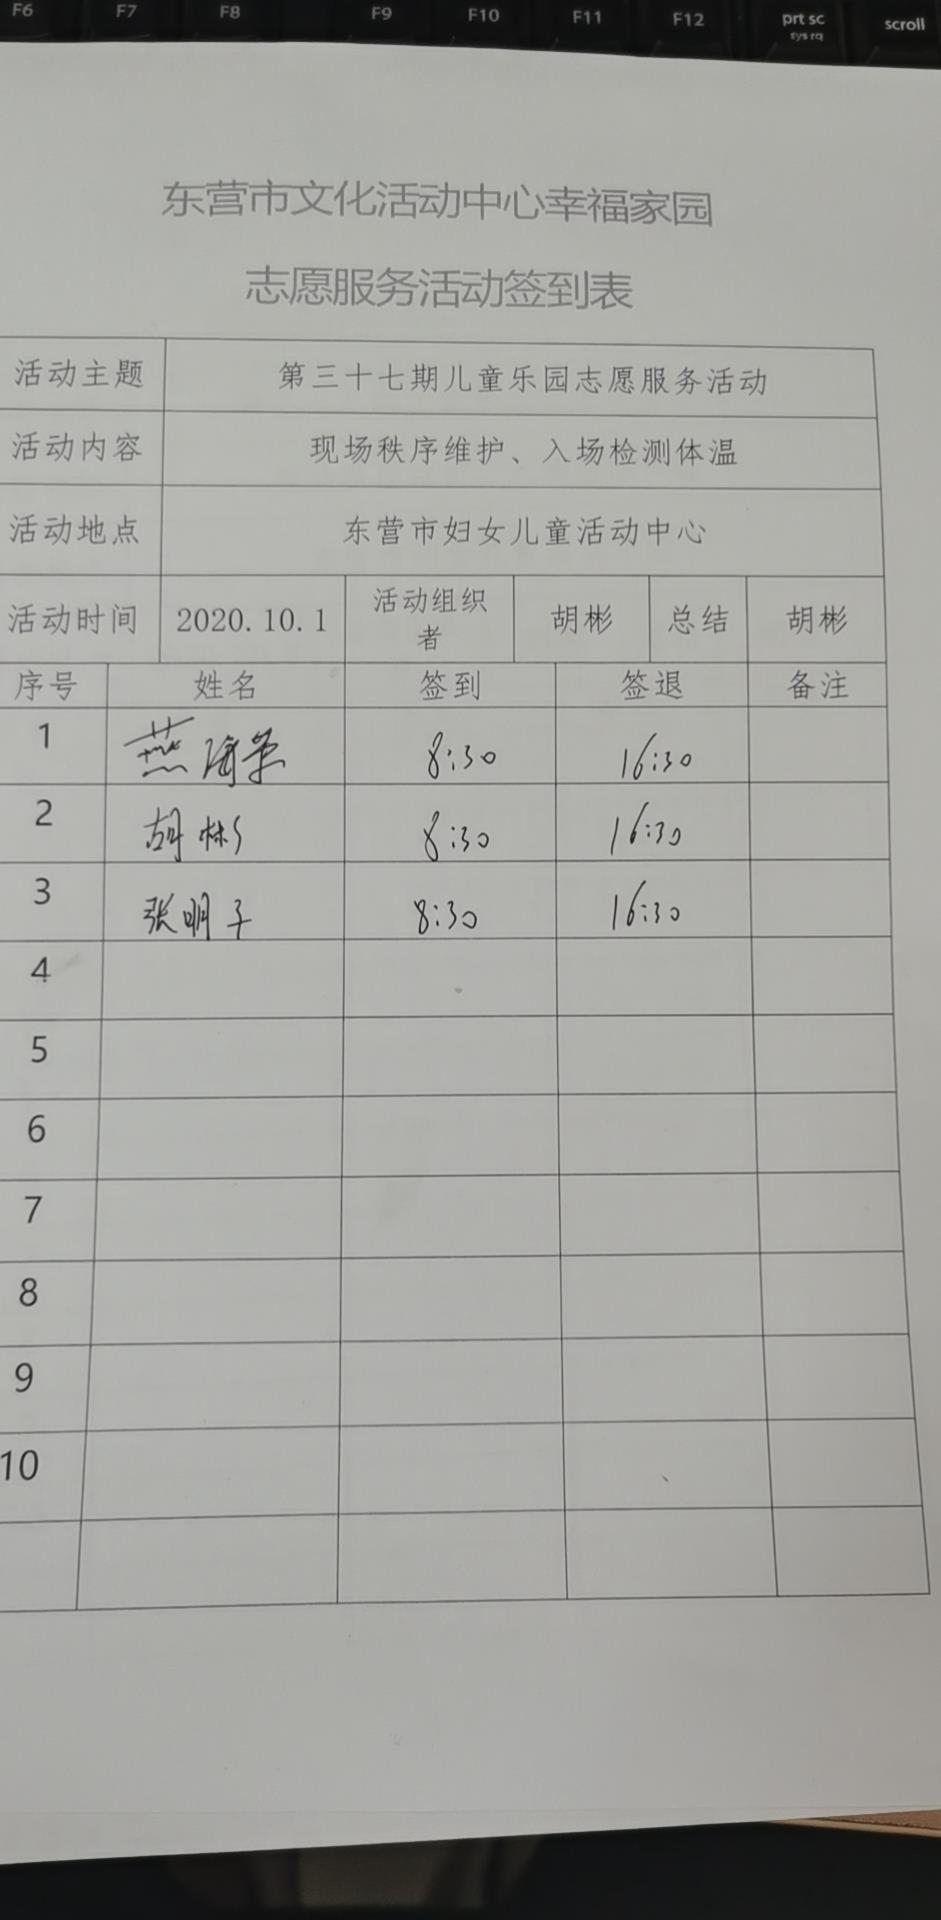 F6 F7 F8 F9 F10 F11 F12 prt sc scroll
sys rq
东营市文化活动中心幸福家园
志愿服务活动签到表
活动主题 第三十七期儿童乐园志愿服务活动
活动内容 现场秩序维护、入场检测体温
活动地点 东营市妇女儿童活动中心
活动时间 2020.10.1 活动组织 胡彬 总结 胡彬
者
序号 姓名 签到 签退 备注
1 燕海 8:30 16:30
2 胡彬 8:30 16:30
3 张明子 8:30 16:30
4
5
6
7
8
9
10